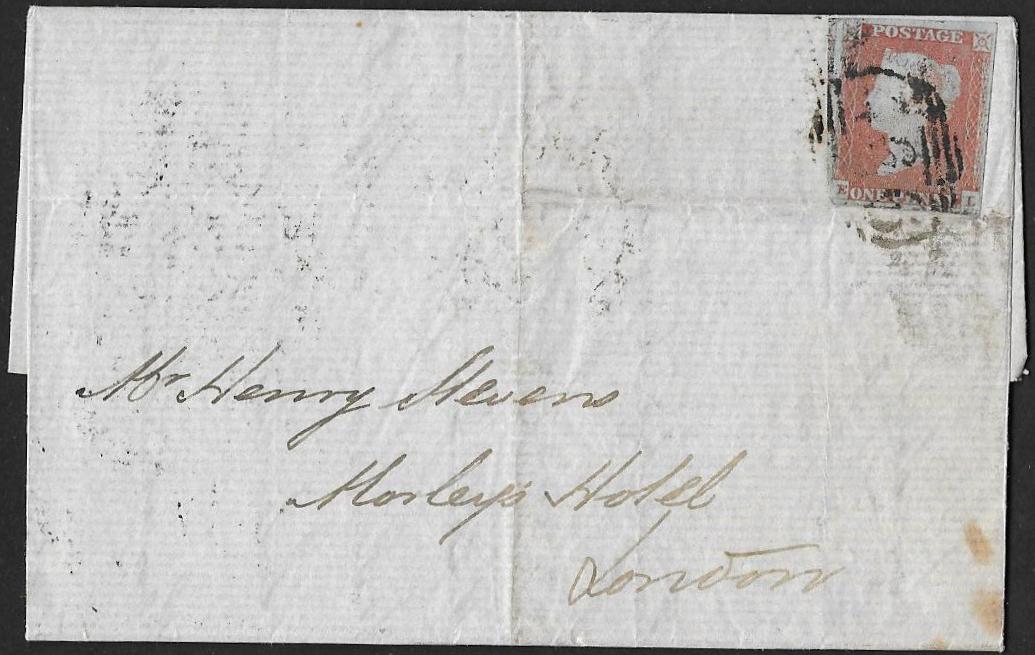 POSTAGE
E ONE PENNY L
Mr Henry Stevens
Morleys Hotel
London